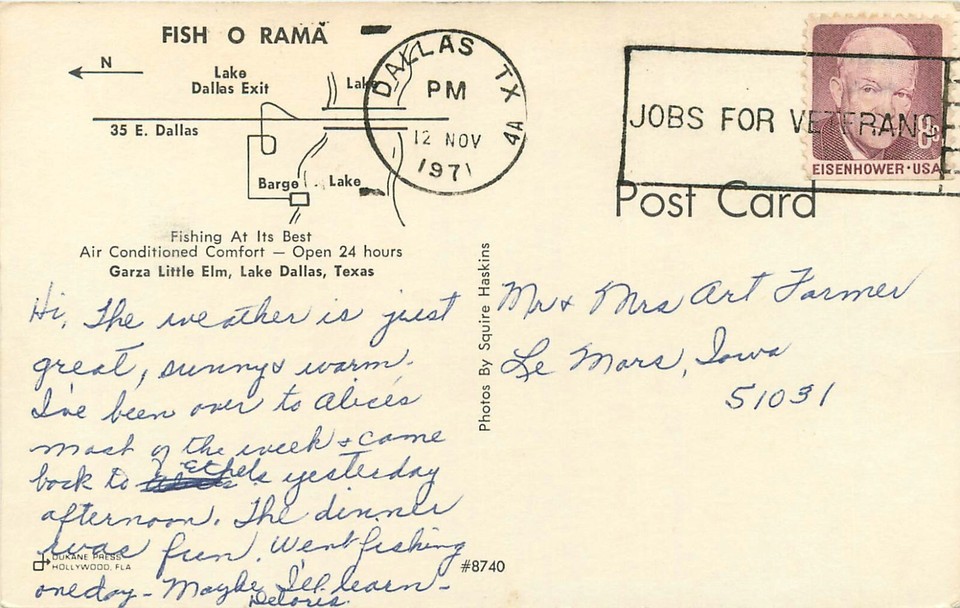 FISH O RAMA
N
Lake
Dallas Exit
Lake
35 E. Dallas
Barge
Lake
Fishing At Its Best
Air Conditioned Comfort — Open 24 hours
Garza Little Elm, Lake Dallas, Texas
DALLAS TX
PM
12 NOV
1971
4A
JOBS FOR VETERANS
8c
EISENHOWER·USA
Post Card
Hi, The weather is just
great, sunny & warm.
I've been over to Alice's
most of the week & came
back to Ethel's yesterday
afternoon. The dinner
was fun. Went fishing
one day - Maybe I'll learn -
Deloris.
Photos By Squire Haskins
Mr & Mrs Art Farmer
Le Mars, Iowa
51031
DUKANE PRESS
HOLLYWOOD, FLA
#8740